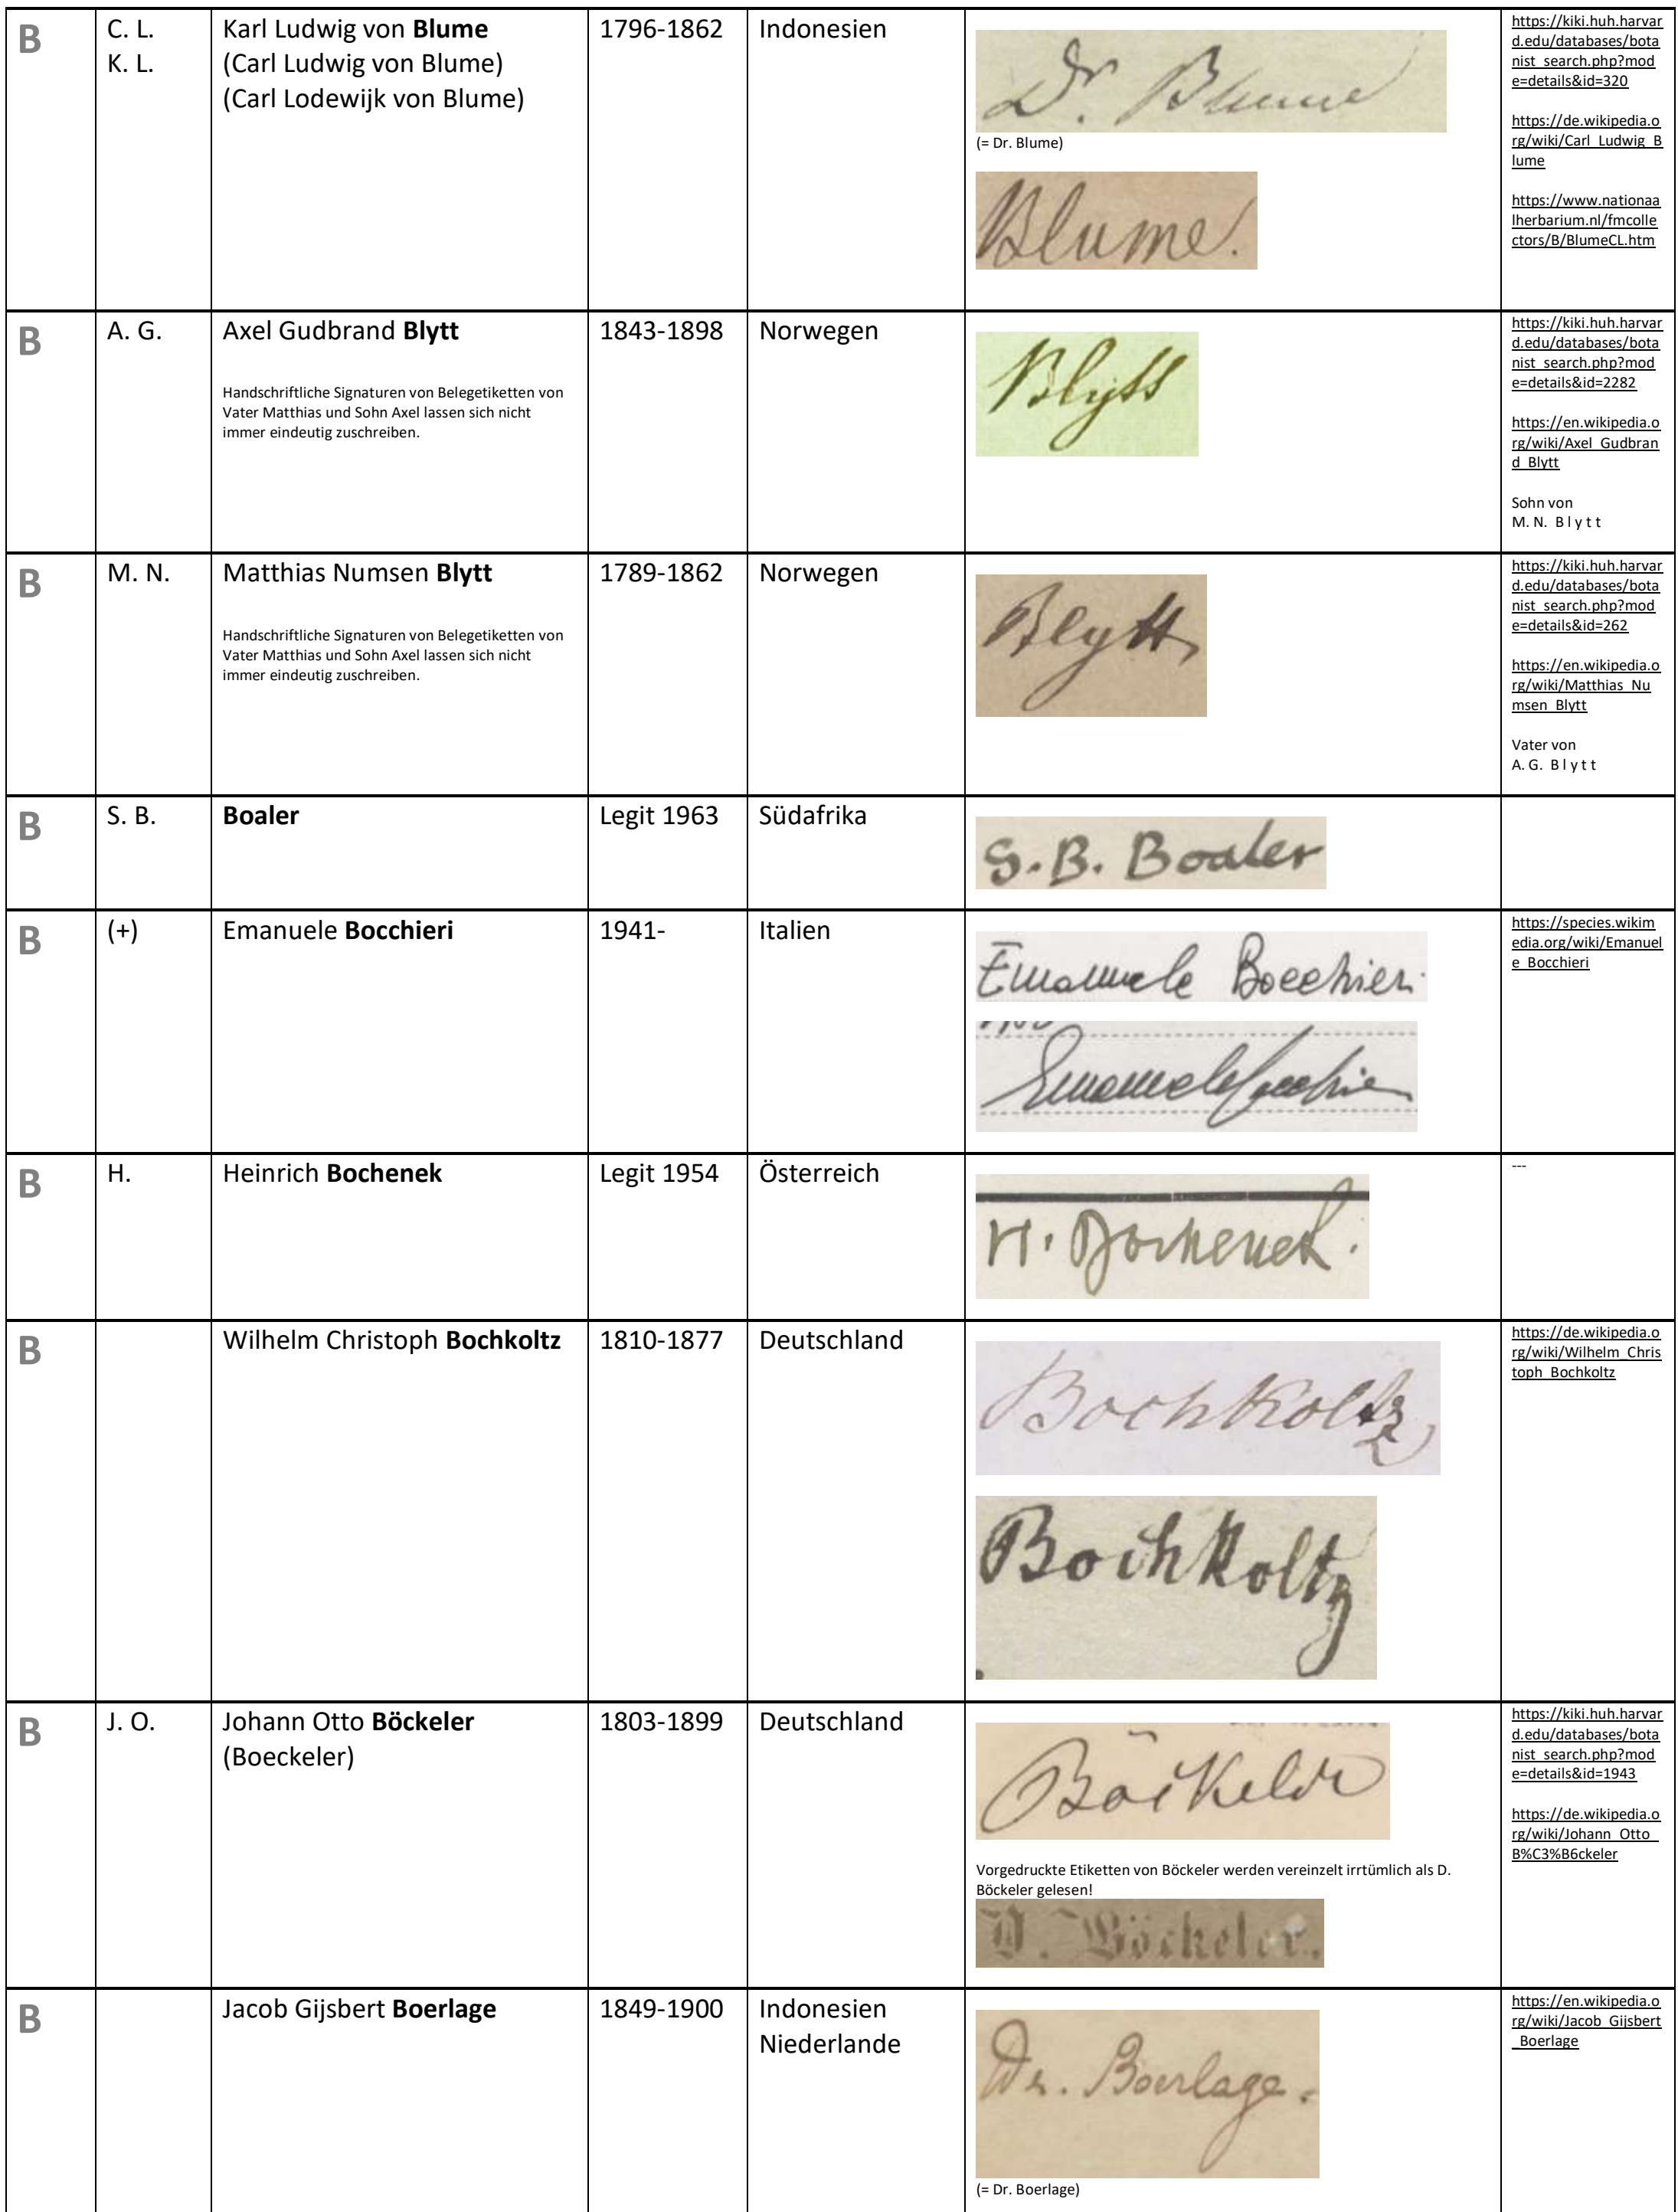 B
C. L.
K. L.
Karl Ludwig von Blume
(Carl Ludwig von Blume)
(Carl Lodewijk von Blume)
1796-1862
Indonesien
Dr. Blume
(= Dr. Blume)
Blume.
https://kiki.huh.harvar
d.edu/databases/bota
nist_search.php?mod
e=details&id=320
https://de.wikipedia.o
rg/wiki/Carl_Ludwig_B
lume
https://www.nationaa
lherbarium.nl/fmcolle
ctors/B/BlumeCL.htm
B
A. G.
Axel Gudbrand Blytt
Handschriftliche Signaturen von Belegetiketten von
Vater Matthias und Sohn Axel lassen sich nicht
immer eindeutig zuschreiben.
1843-1898
Norwegen
Blytt
https://kiki.huh.harvar
d.edu/databases/bota
nist_search.php?mod
e=details&id=2282
https://en.wikipedia.o
rg/wiki/Axel_Gudbran
d_Blytt
Sohn von
M. N. B l y t t
B
M. N.
Matthias Numsen Blytt
Handschriftliche Signaturen von Belegetiketten von
Vater Matthias und Sohn Axel lassen sich nicht
immer eindeutig zuschreiben.
1789-1862
Norwegen
Blytt
https://kiki.huh.harvar
d.edu/databases/bota
nist_search.php?mod
e=details&id=262
https://en.wikipedia.o
rg/wiki/Matthias_Nu
msen_Blytt
Vater von
A. G. B l y t t
B
S. B.
Boaler
Legit 1963
Südafrika
S. B. Boaler
B
(+)
Emanuele Bocchieri
1941-
Italien
Emanuele Bocchieri
Emanuele Bocchieri
https://species.wikim
edia.org/wiki/Emanuel
e_Bocchieri
B
H.
Heinrich Bochenek
Legit 1954
Österreich
H. Bochenek.
---
B
Wilhelm Christoph Bochkoltz
1810-1877
Deutschland
Bochkoltz
Bochkoltz
https://de.wikipedia.o
rg/wiki/Wilhelm_Chris
toph_Bochkoltz
B
J. O.
Johann Otto Böckeler
(Boeckeler)
1803-1899
Deutschland
Böckeler
Vorgedruckte Etiketten von Böckeler werden vereinzelt irrtümlich als D.
Böckeler gelesen!
O. Böckeler.
https://kiki.huh.harvar
d.edu/databases/bota
nist_search.php?mod
e=details&id=1943
https://de.wikipedia.o
rg/wiki/Johann_Otto_
B%C3%B6ckeler
B
Jacob Gijsbert Boerlage
1849-1900
Indonesien
Niederlande
Dr. Boerlage.
(= Dr. Boerlage)
https://en.wikipedia.o
rg/wiki/Jacob_Gijsbert
_Boerlage